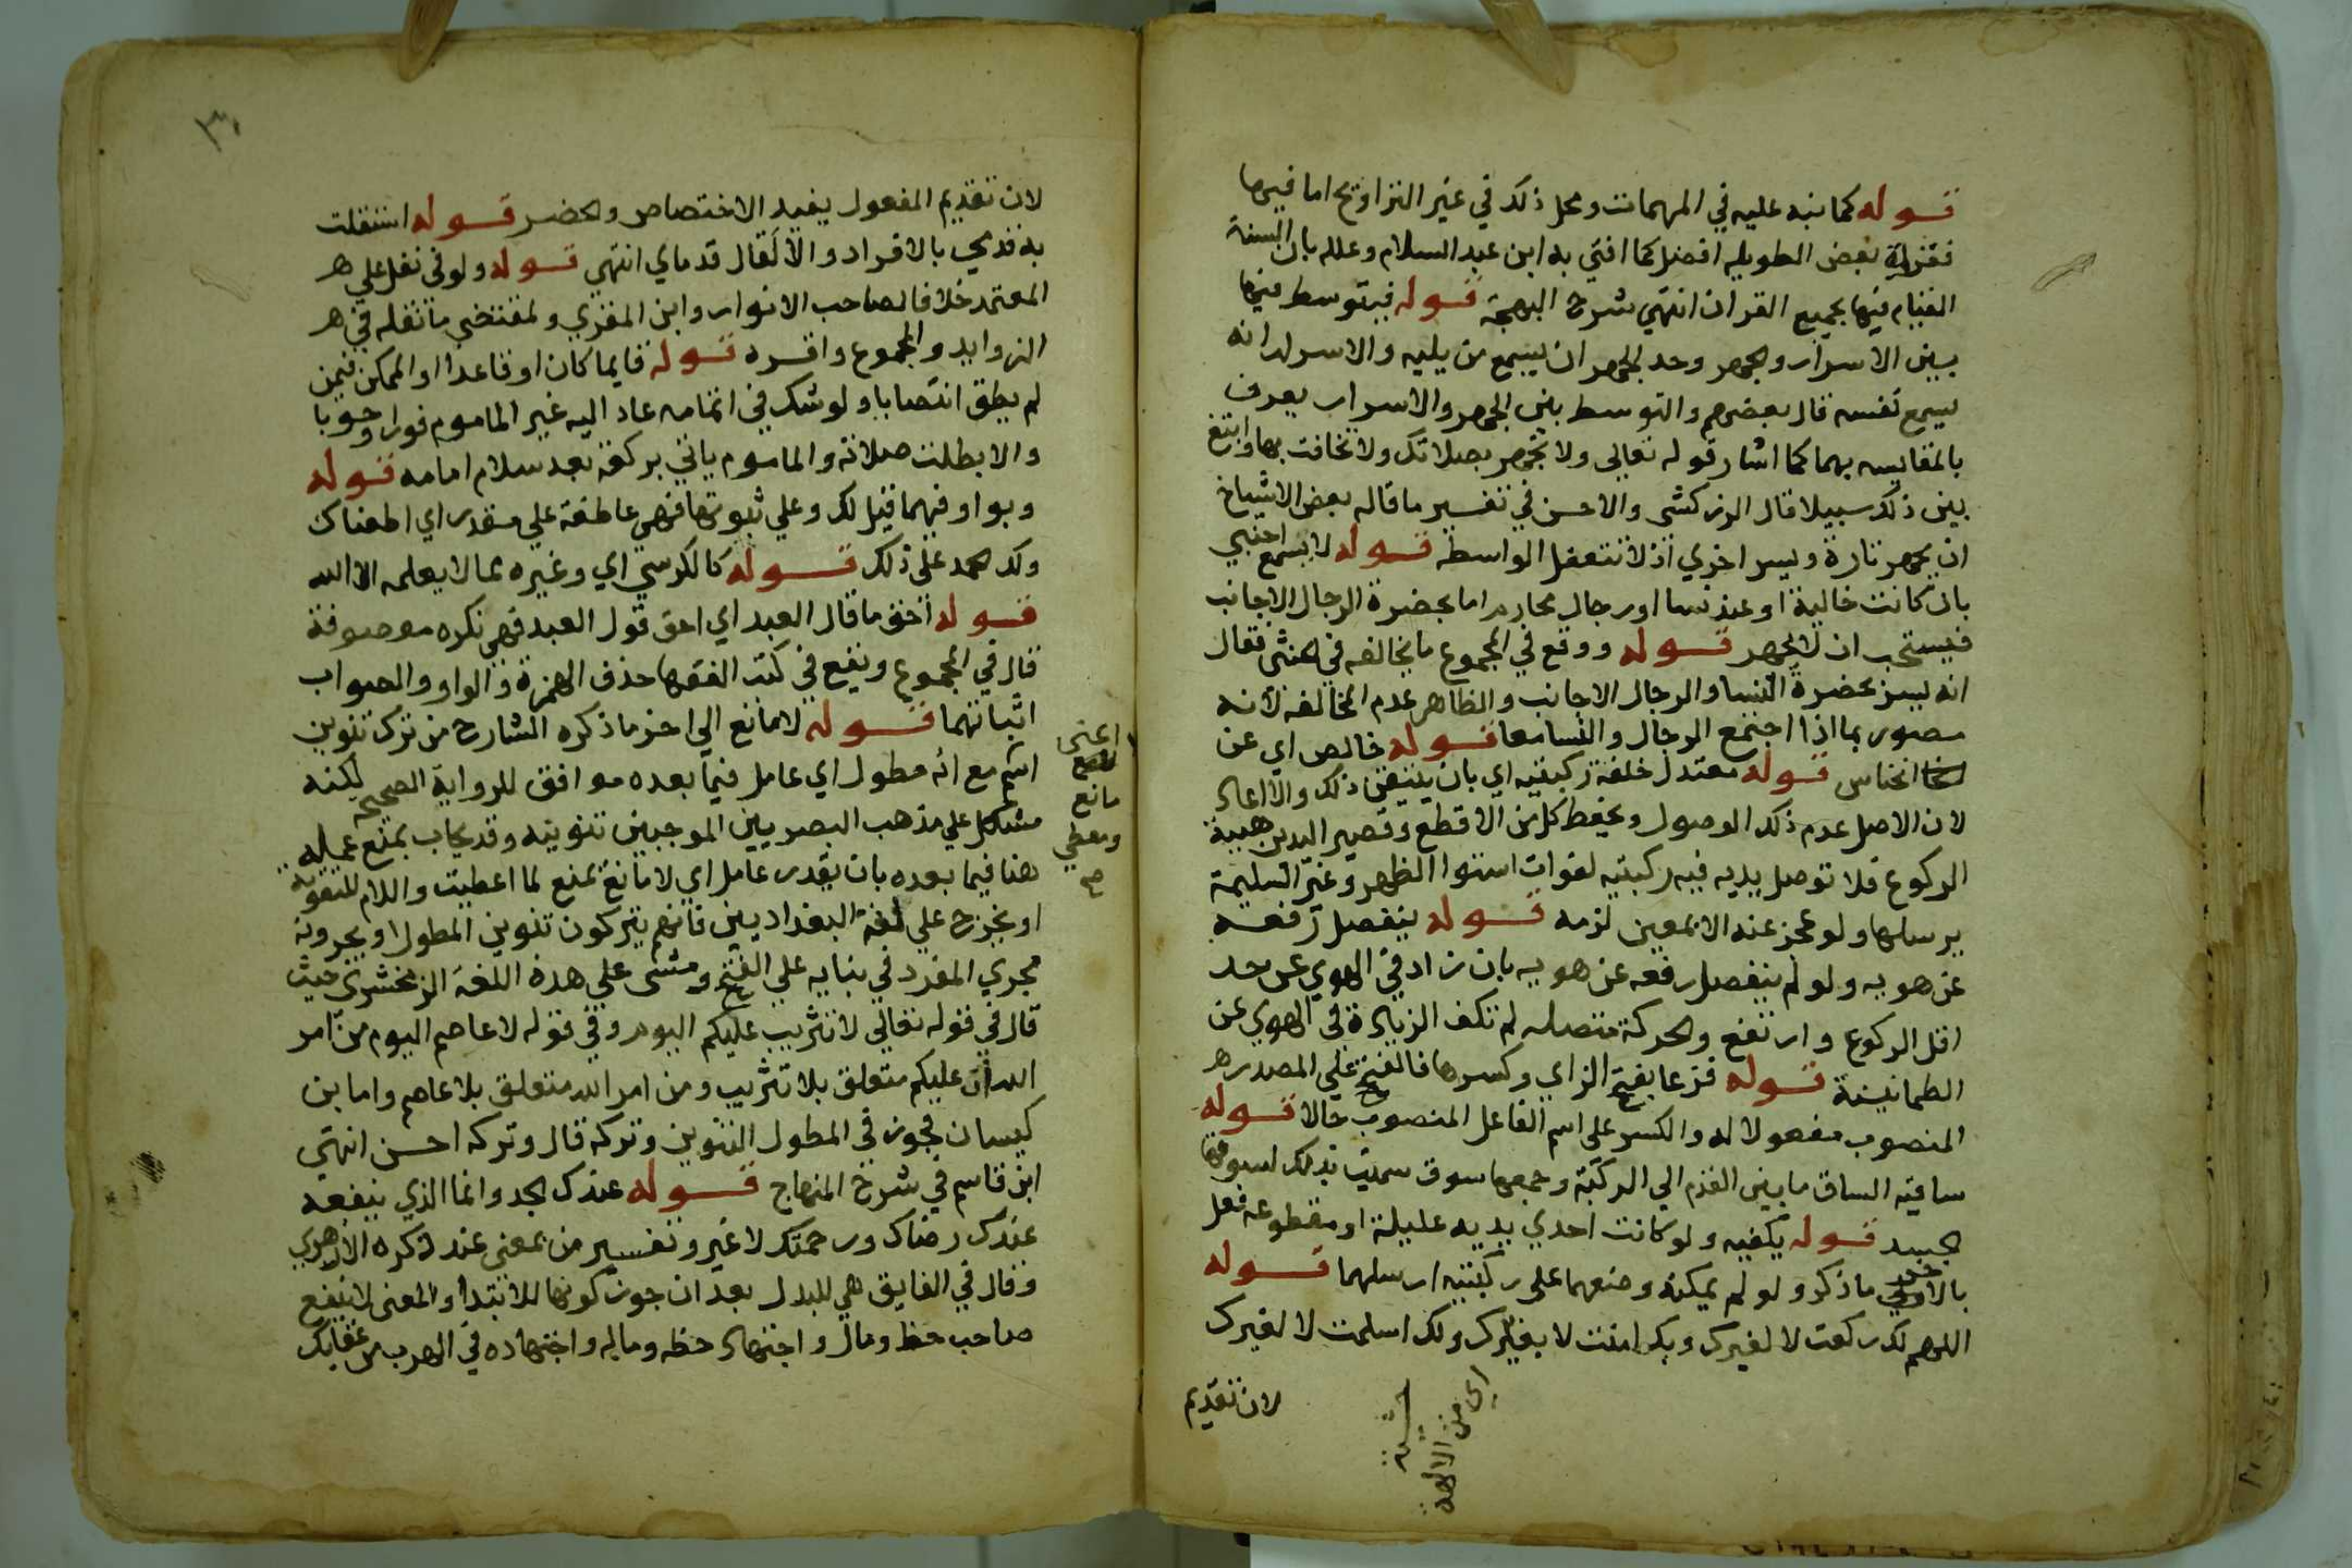 قوله كما نبه عليه في المهمات ومحل ذلك في غير التراويح اما فيها
فقراة بعض الطويله افضل كما افتي به ابن عبد السلام وعلله بان السنة
القيام فيها بجميع القران انتهي شرح البهجة قوله فيتوسط فيها
بين الاسرار والجهر وحد الجهر ان يسمع من يليه والاسرار انه
يسمع نفسه قال بعضهم والتوسط بين الجهر والاسرار يعرف
بالمقايسه بهما كما اشار قوله تعالي ولا تجهر بصلاتك ولا تخافت بها وابتغ
بين ذلك سبيلا قال الزركشي والاحسن في تفسير ما قاله بعض الاشياخ
ان يجهر تارة ويسر اخري اذ لا تتعقل الواسطة قوله لا يسمع اجنبي
بان كانت خالية او عند نسا او رجال محارم اما بحضرة الرجال الاجانب
فيستحب ان لا يجهر قوله ووقع في المجموع ما يخالفه في الخنثي فقال
انه ليسر بحضرة النسا والرجال الاجانب والظاهر عدم المخالفه لانه
مصور بما اذا اجتمع الرجال والنسا معا قوله خالص اي عن
انخناس قوله معتدل خلقة ركبتيه اي بان يتيقن ذلك والا اعاد
لان الاصل عدم ذلك الوصول ويحفظ كل من الاقطع وقصير اليدين هيية
الركوع فلا توصل يديه فيه ركبتيه لفوات استوا الظهر وغير السليمة
يرسلها ولو عجز عنه الا بمعين لزمه قوله ينفصل رفعه
عن هويه ولو لم ينفصل رفعه عن هويه بان زاد في الهوي عن حد
اقل الركوع وارتفع والحركة متصله لم تكف الزيادة في الهوي عن
الطمانينة قوله فزعا بفتح الزاي وكسرها فالفتح علي المصدر هر
المنصوب مفعولا له والكسر علي اسم الفاعل المنصوب حالا قوله
ساقيه الساق ما بين القدم الي الركبة وجمعها سوق سميت بذلك لسوقها
الجسد قوله يكفيه ولو كانت احدي يديه عليلة او مقطوعه فعل
بالاخري ما ذكر ولو لم يمكنه وضعهما علي ركبتيه ارسلهما قوله
اللهم لك ركعت لا لغيرك وبك امنت لا بغيرك ولك اسلمت لا لغيرك
اي من الالهة
لان تقديم
لان تقديم المفعول يفيد الاختصاص والحصر قوله استقلت
به قدمي بالافراد والا لقال قدماي انتهي قوله ولو في نفل علي هر
المعتمد خلافا لصاحب الانوار وابن المقري ولمقتضي ما نقله في هر
الزوايد والمجموع واقره قوله قايما كان او قاعدا او الممكن فيمن
لم يطق انتصابا ولو شك في اتمامه عاد اليه غير الماموم فورا وجوبا
والا بطلت صلاته والماموم ياتي بركعة بعد سلام امامه قوله
وبواو فيهما قبل لك وعلي ثبوتها فهي عاطفة علي مقدر اي اطعناك
ولك الحمد علي ذلك قوله كالكرسي اي وغيره مما لا يعلمه الا الله
قوله احق ما قال العبد اي احق قول العبد فهي نكره موصوفة
قال في المجموع ويقع في كتب الفقها حذف الهمزة والواو والصواب
اثباتهما قوله لا مانع الي اخر ما ذكره الشارح من ترك تنوين
اسم مع انه مطول اي عامل فيما بعده موافق للرواية الصحيحه لكنه
مشكل علي مذهب البصريين الموجبين تنوينه وقد يجاب بمنع عمله
هنا فيما بعده بان يقدر عامل اي لا مانع يمنع لما اعطيت واللام للتقوية
او يخرج علي لغة البغداديين فانهم يتركون تنوين المطول ويجرونه
مجري المفرد في بنايه علي الفتح ومشي علي هذه اللغة الزمخشري حيث
قال في قوله تعالي لا تثريب عليكم اليوم وفي قوله لا عاصم اليوم من امر
الله ان عليكم متعلق بلا تثريب ومن امر الله متعلق بلا عاصم واما بن
كيسان فجوز في المطول التنوين وتركه قال وتركه احسن انتهي
ابن قاسم في شرح المنهاج قوله عندك الجد وانما الذي ينفعه
عندك رضاك ورحمتك لا غير وتفسير من بمعني عند ذكره الازهري
وقال في الفايق هي للبدل بعد ان جوز كونها للابتدا والمعني لا ينفع
صاحب حظ ومال واجتهاد حظه وماله واجتهاده في الهرب من عقابك
اعني
مانع
ومعطي
صح